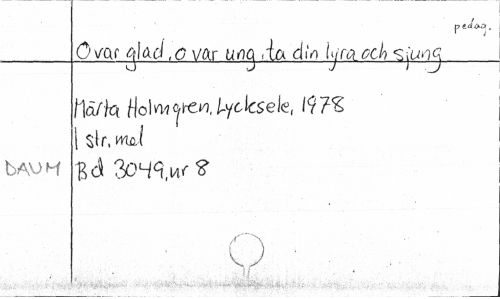 pedag.
O var glad, o var ung, ta din lyra och sjung
Märta Holmgren, Lycksele, 1978
1 str, mel
DAUM Bd 3049, nr 8